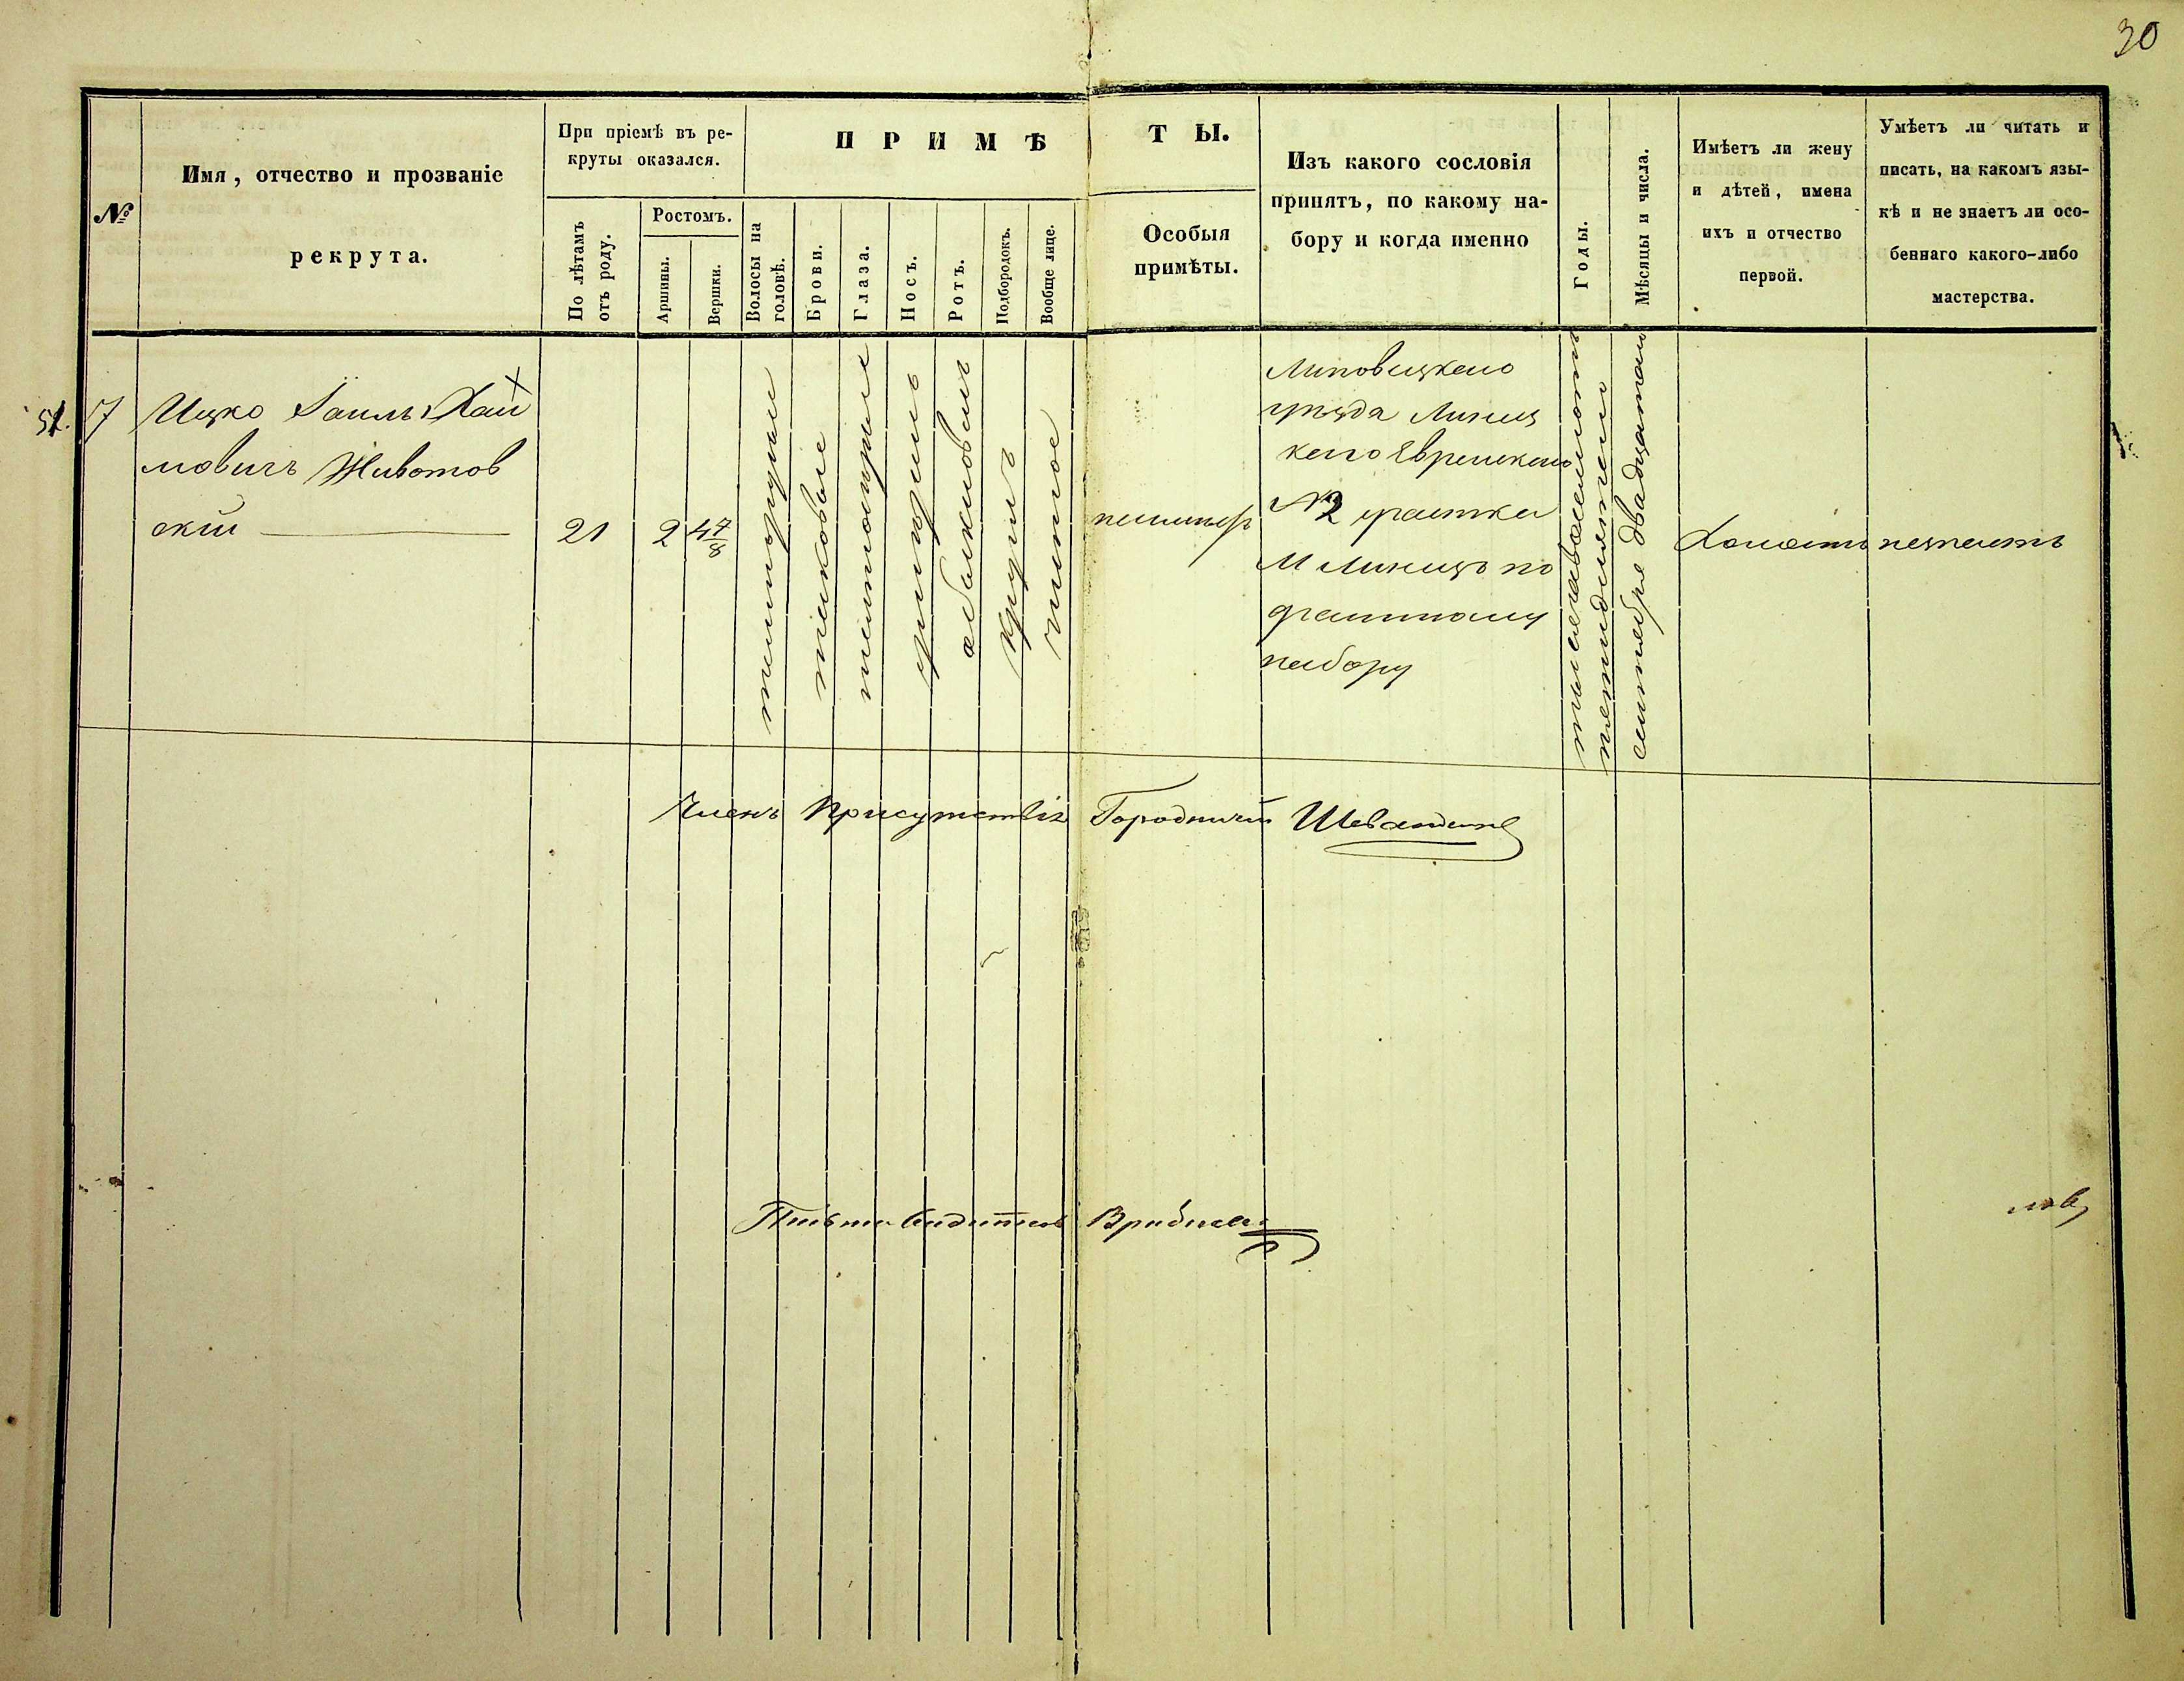 30
№
Имя, отчество и прозваніе
рекрута.
При пріемѣ въ ре-
круты оказался.
По лѣтамъ
отъ роду.
Ростомъ.
Аршины.
Вершки.
ПРИМѢ
ТЫ.
Волосы на
головѣ.
Брови.
Глаза.
Носъ.
Ротъ.
Подбородокъ.
Вообще лице.
Особыя
примѣты.
Изъ какого сословія
принятъ, по какому на-
бору и когда именно
Годы.
Мѣсяцы и числа.
Имѣетъ ли жену
и дѣтей, имена
ихъ и отчество
первой.
Умѣетъ ли читать и
писать, на какомъ язы-
кѣ и не знаетъ ли осо-
беннаго какого-либо
мастерства.
51. 7
Ицко Хай
мовичъ Животов
скій
21
2
4 7/8
таковые
умѣренъ
обыкновенъ
круглъ
чистое
неимѣетъ
Липовецкаго
уѣзда Линец
каго Еврейскаго
№ 2 участка
М Линецъ по
частному
набору
тысяча восемьсотъ
пятидесятаго
сентября двадцатаго
Холостъ
незнаетъ
Членъ Присутствія Городничій
Письмоводитель